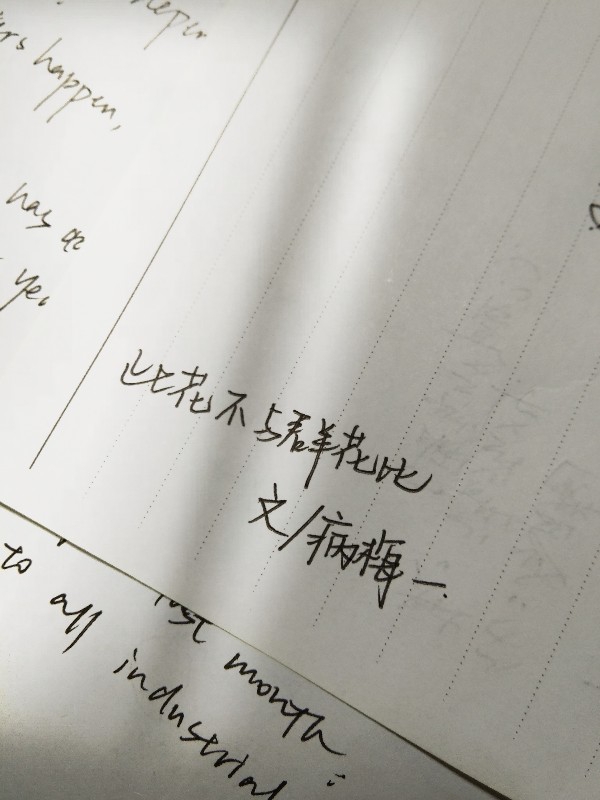 happen,
has
此花不与群花比
文/病梅一
to all industrial
last month